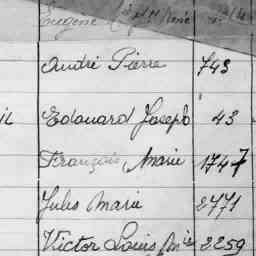 Eugène
André Pierre 743
Edouard Joseph 43
François, Marie 1747
Jules Marie 2771
Victor Louis Mie 2259